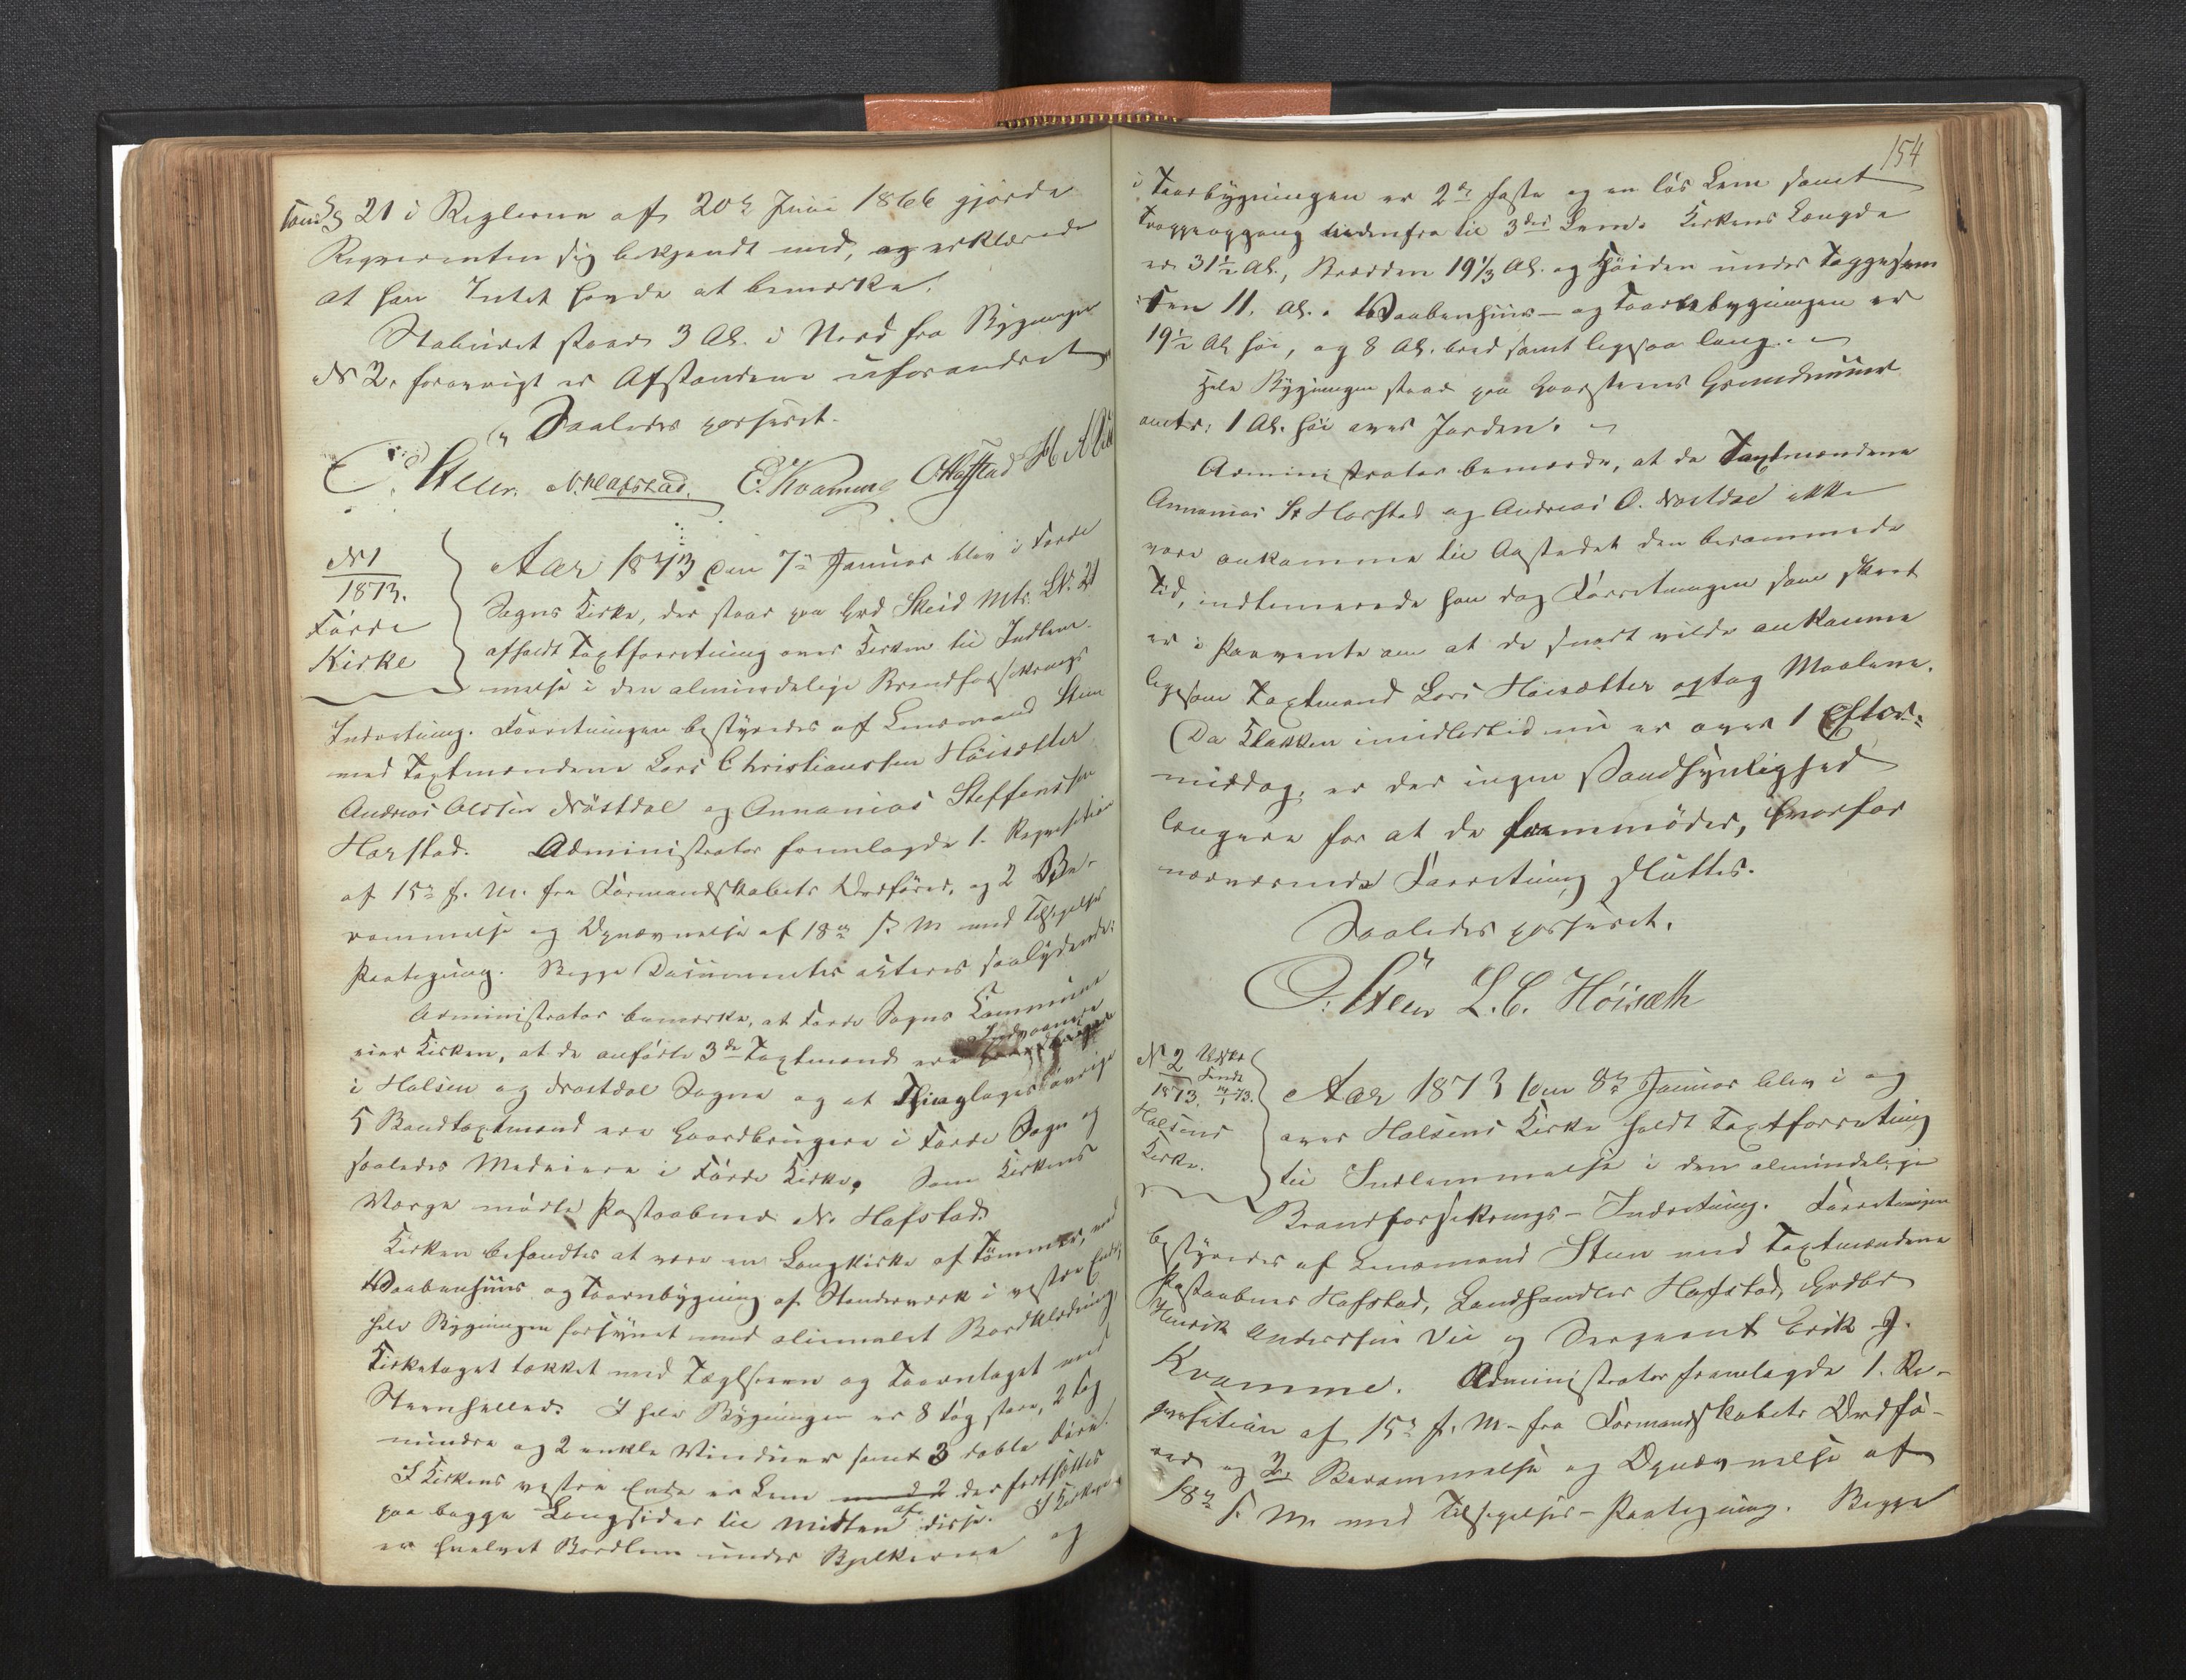 samt § 21 i Reglerne af 20de Juni 1866 gjorde
Reqvirenten sig bekjendt med, og erklærede
at han Intet havde at bemærke.
Staburet staar 3 Al. i Nord fra Bygningen
N 2. forøvrigt er Afstandene uforandret
Saaledes passeret.
Steen N. Hafstad. E. Kvamme O Hafstad
N 1
1873.
Førde
Kirke
Aar 1873 den 7de Januar blev i Førde
Sogns Kirke, der staar paa Grd Skeid Mtr. LN. 21
afholdt Taxtforretning over Kirken til Indlem-
melse i den almindelige Brandforsikrings
Indretning. Forretningen bestyredes af Lensmand Steen
med Taxtmændene Lars Christiansen Høisætter
Andreas Olsen Nøstdal og Annanias Steffensen
Harstad. Administrator fremlagde 1. Reqvisition
af 15de f. M. fra Formandskabets Ordfører, og 2 Be-
rammelse og Opnævnelse af 18de s. M. med Tilsigelses
Paategning. Begge Documenter acteres saalydende:
Administrator bemærke, at Førde Sogns Kommune
eier Kirken, at de anførte 3de Taxtmænd ere Indvaanere
i Holsen og Nøstdal Sogne og at Thinglagets øvrige
5 Brandtaxtmænd ere Gaardbrugere i Førde Sogn og
saaledes Medeiere i Førde Kirke. Som Kirkens
Værge mødte Postaabner N. Hafstad.
Kirken befandtes at være en Langkirke af Tømmer, med
Vaabenhuus og Taarnbygning af Stenderværk i vestre Ende,
hele Bygningen forsynet med oliemalet Bordklædning
Kirketaget tækket med Taglsteen og Taarntaget med
Steenheller. I hele Bygningen er 8 fag store, 2 fag
mindre og 2 enkle Vinduer samt 3 doble Døre.
I Kirkens vestre Ende er Lem med 2 der fortsættes
paa begge Langsider til Midten af disse. I Kirken
er hvelvet Bordlem under Bjelkerne og
154
i Taarnbygningen er 2de faste og en løs Lem samt
Trappeopgang nedenfra til 3die Lem. Kirkens Længde
er 31½ Al., Bredden 19⅓ Al. og Høiden under Taggesem
sen 11. Al. Vaabenhuus- og Taarnbygningen er
19½ Al høi, og 8 Al. bred samt ligesaa lang.
Hele Bygningen staar paa Graasteens Grundmuur
omtr. 1 Al. høi over Jorden.
Administrator bemærke, at da Taxtmændene
Annanias St Harstad og Andreas O. Nøstdal ikke
vare ankomne til Aastedet den berammede
Tid, indtimerede han dog Forretningen som skeet
er i Paavente om at de snart vilde ankomme
ligesom Taxtmand Lars Høisætter optog Maalene.
Da Klokken imidlertid nu er over 1 Efter-
middag, er der ingen Sandsynlighed
længere for at de fremmøder, hvorfor
nærværende Forretning sluttes.
Saaledes passeret.
Steen L. C. Høisæth
N 2
1873.
Holsens
Kirke.
Aar 1873 den 8de Januar blev i og
over Holsens Kirke holdt Taxtforretning
til Indlemmelse i den almindelige
Brandforsikrings-Indretning. Forretningen
bestyredes af Lensmand Steen med Taxtmændene
Postaabner Hafstad, Landhandler Hafstad, Grdbr
Henrik Anderssen Vie og Sergeant Erik J.
Kvamme. Administrator fremlagde 1. Re-
qvisition af 15de f. M. fra Formandskabets Ordfø-
rer og 2. Berammelse og Opnævnelse af
18de s. M. med Tilsigelses-Paategning. Begge